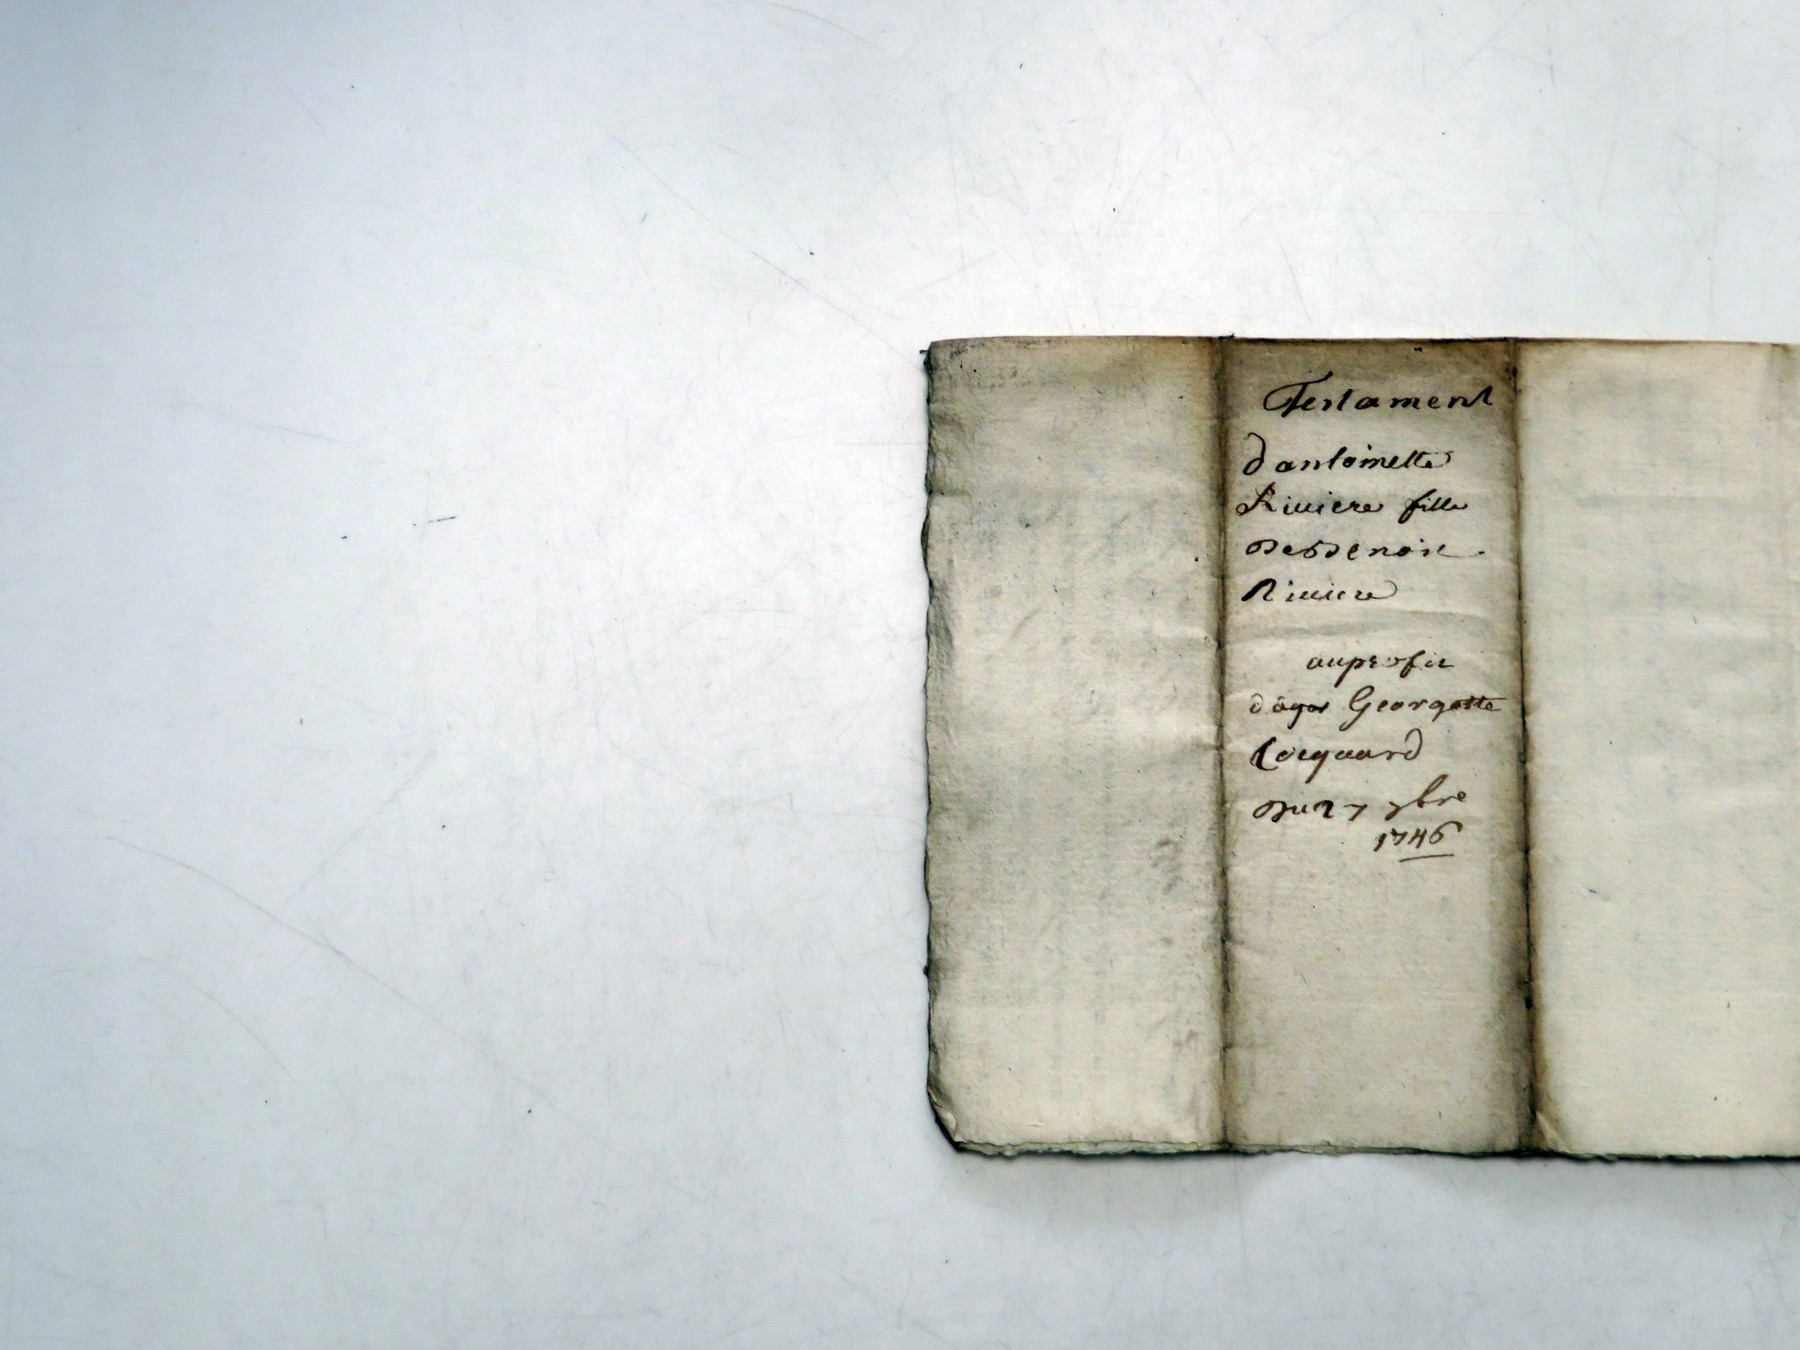 Testament
d'antoinette
Riviere fille
de Benoit
Riviere
au profit
Georgette
Cocquard
Du 27 9bre
1746